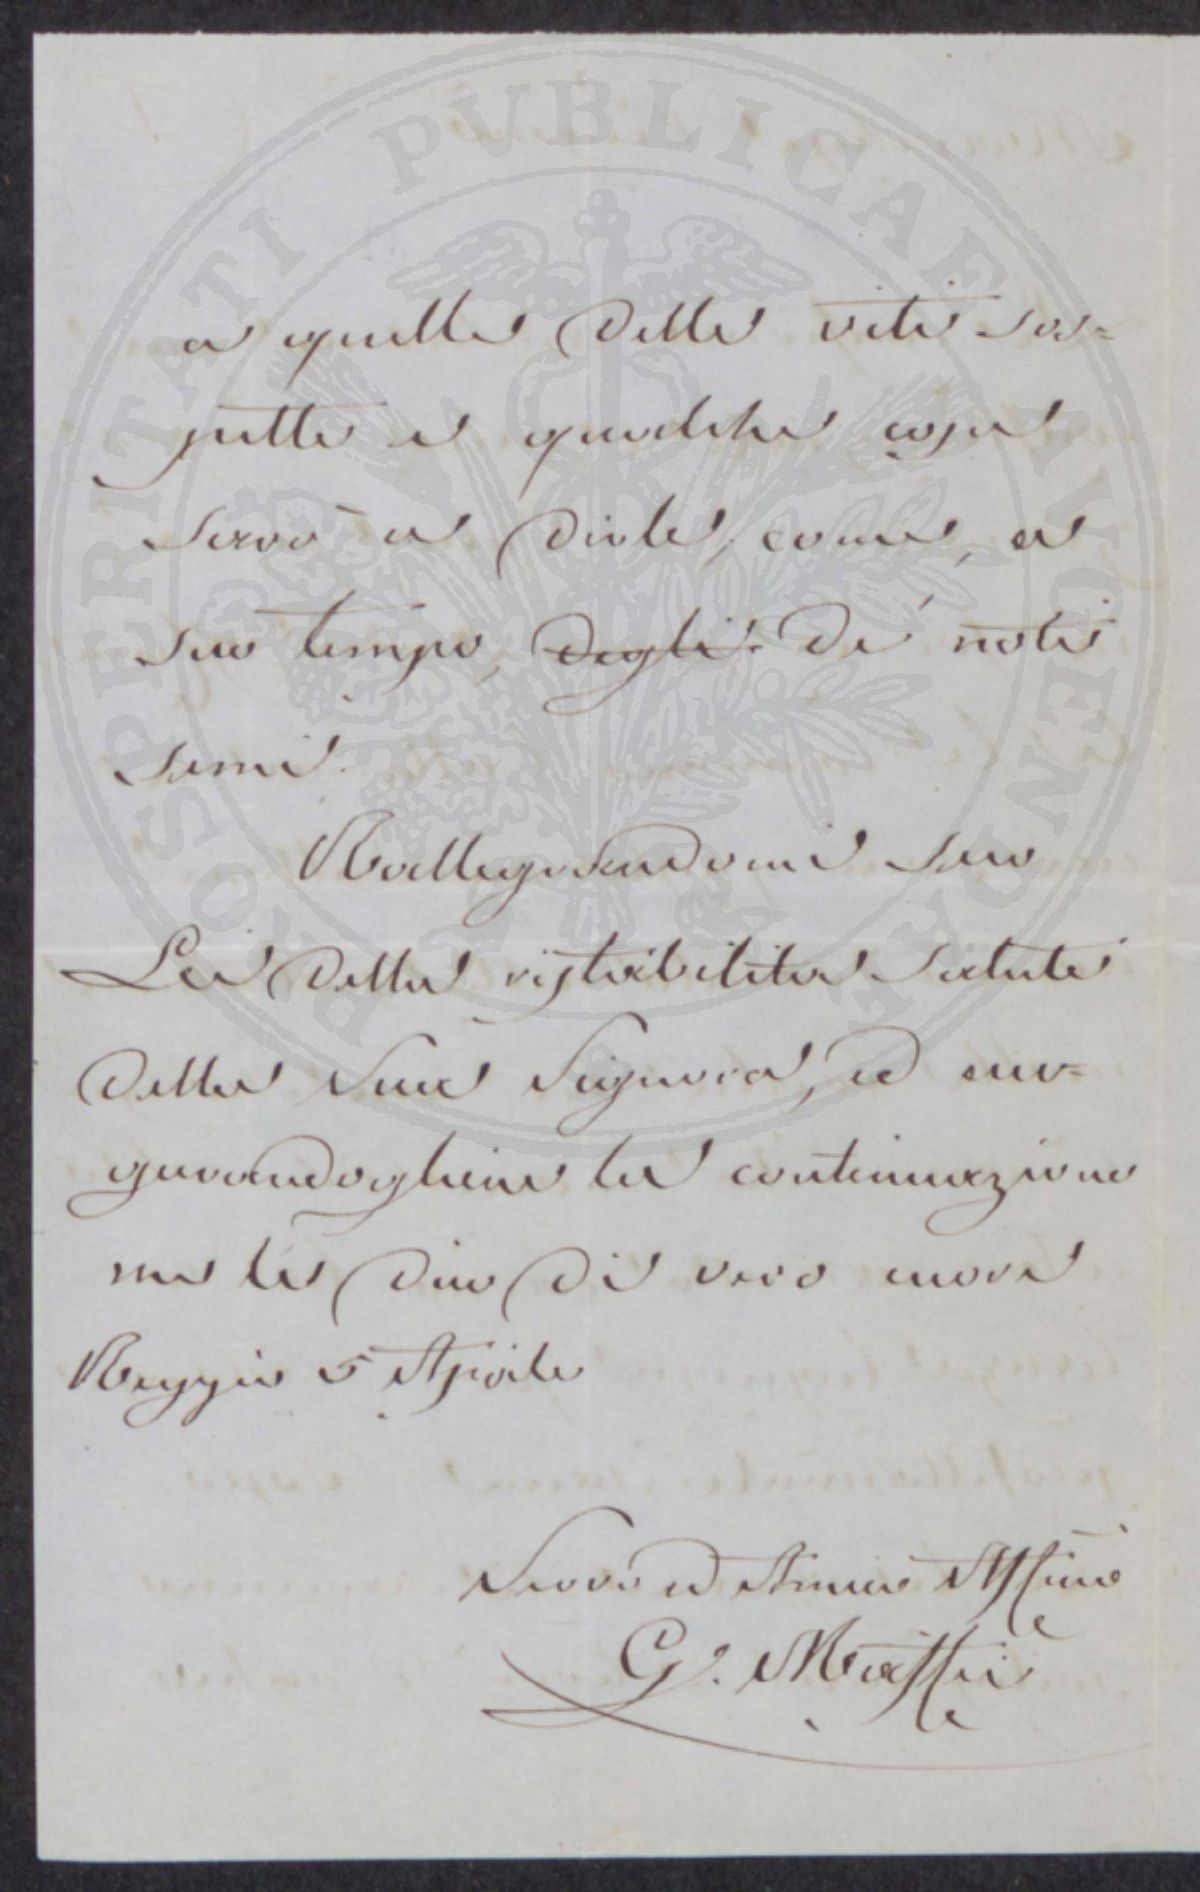 PROSPERITATI PVBLICAE AVGENDAE
a quelle delle viti so=
spette e qualche cosa
saravi a dirle, come, a
suo tempo, degli de' noti
semi.
Rallegrandomi seco
Lei della ristabilita salute
della Sua Signora, ed au=
gurandogliene la continuazione
me le dico di vero cuore
Reggio 5 Aprile
Servo ed Amico Affmo
G.